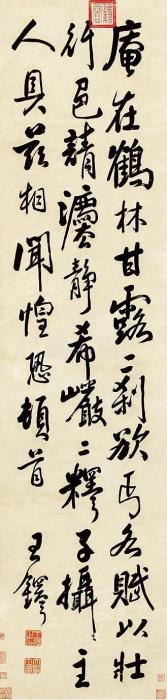 庵在鶴林甘露二刹欲丐各賦以壯
行邑請瀑靜希嚴二釋子攝主
人具茲相聞惶恐頓首
王鐸